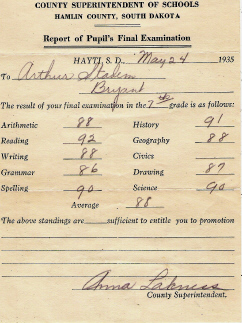 COUNTY SUPERINTENDENT OF SCHOOLS
HAMLIN COUNTY, SOUTH DAKOTA
Report of Pupil's Final Examination
HAYTI, S. D., May 24 1935
To Arthur Stadem
Bryant
The result of your final examination in the 7th grade is as follows:
Arithmetic 88 History 91
Reading 92 Geography 88
Writing 88 Civics
Grammar 86 Drawing 87
Spelling 90 Science 90
Average 88
The above standings are sufficient to entitle you to promotion
Anna Lakness
County Superintendent.